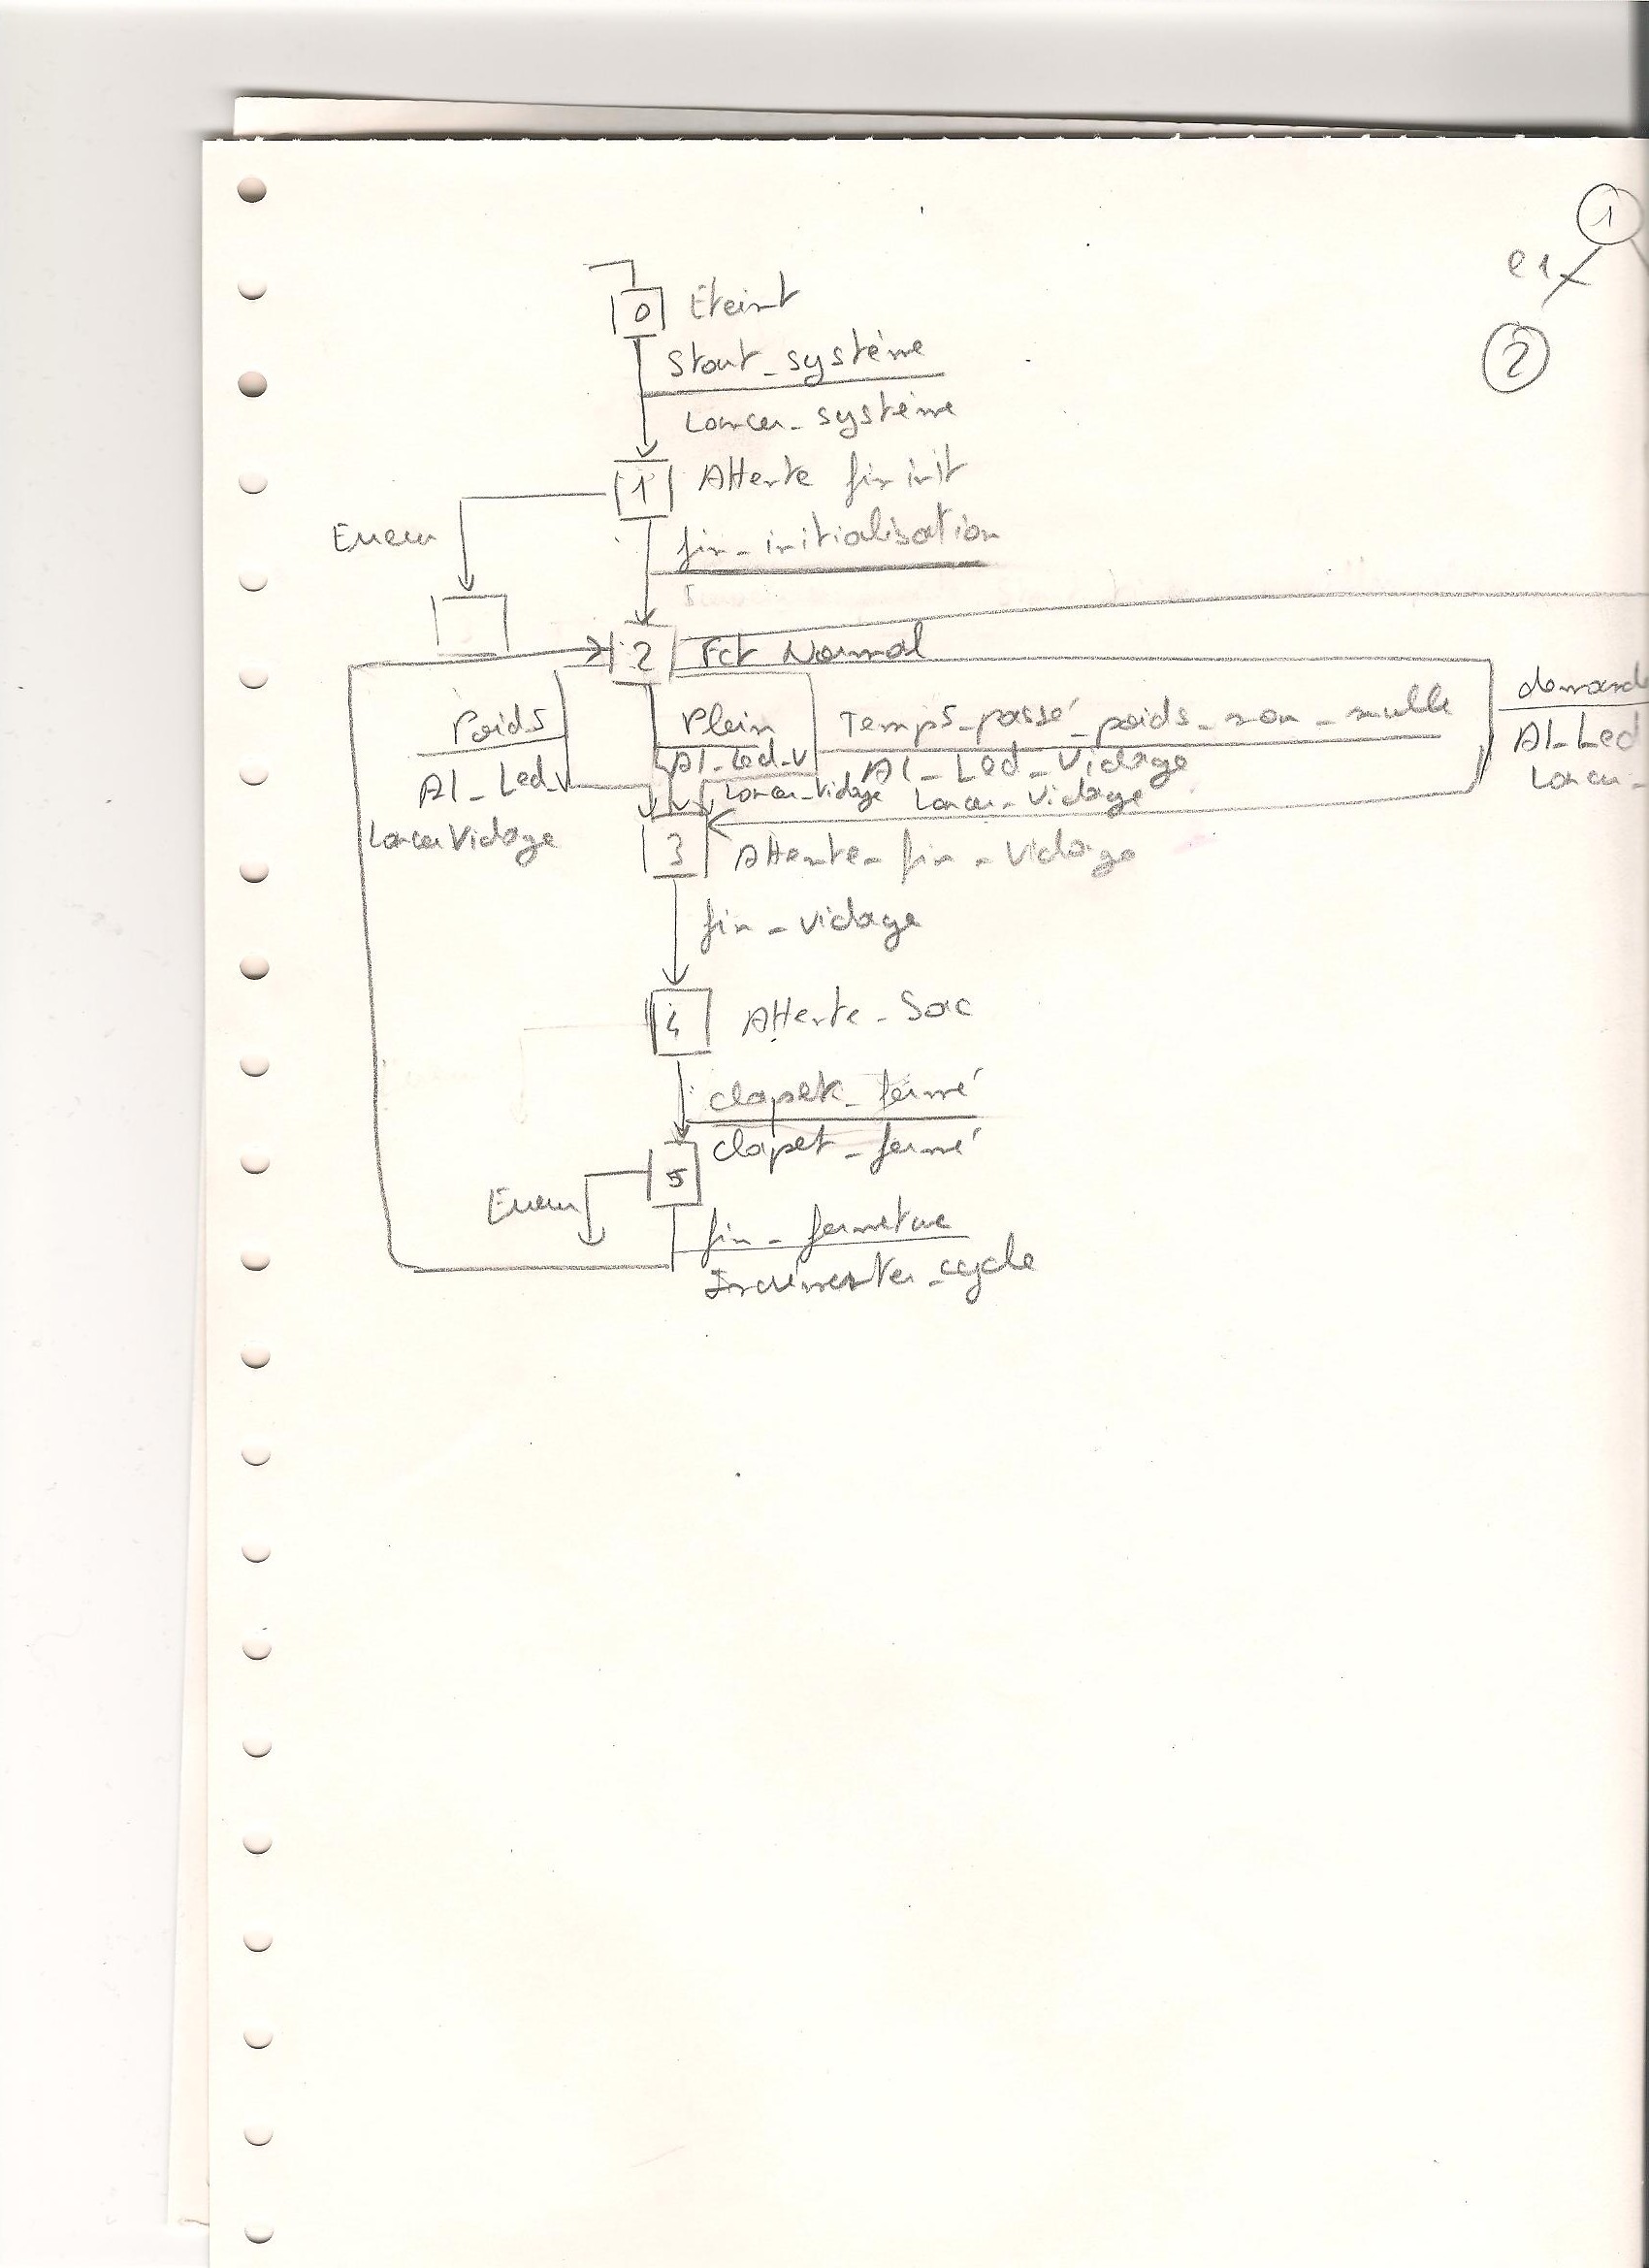 1
e1
2
0 Eteint
Start_système
Lancer_système
1 Attente fin init
Erreur
fin_initialisation
2 Fct Normal
Poids
Al_Led_V
Lancer Vidage
Plein
Al_Led_V
Lancer_Vidage
Temps_passé_poids_non_nulle
Al_Led_Vidage
Lancer_Vidage
demande
Al_Led
Lancer_
3 Attente_fin_Vidage
fin_vidage
4 Attente_Sac
clapet_fermé
clapet_fermé
5
Erreur
fin_fermeture
Incrémenter_cycle